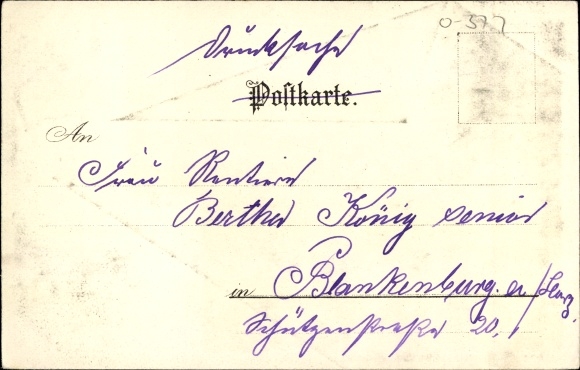 O-577
Drucksache
Postkarte.
An
Frau Rentiere
Bertha König senior
in Blankenburg a/Harz.
Schützenstraße 20.